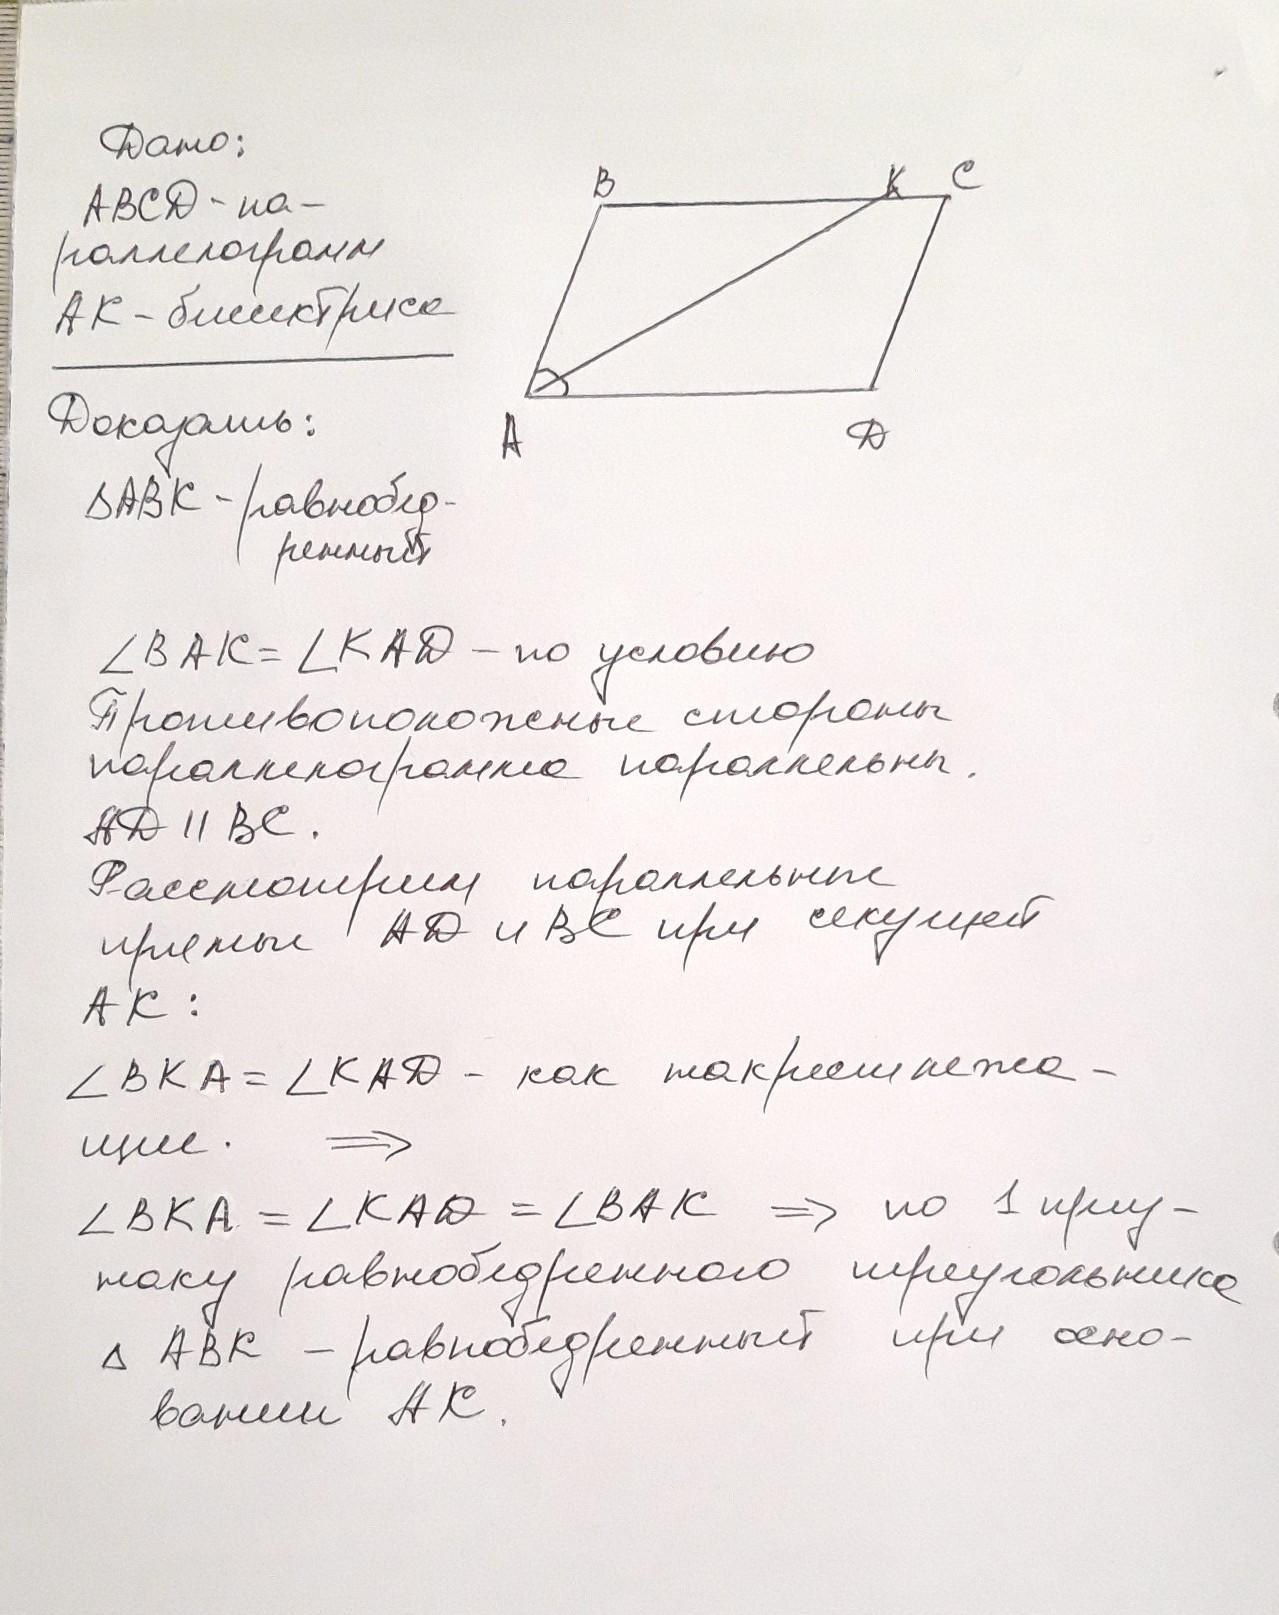 Дано:
ABCD - па-
раллелограмм
AK - биссектриса
B
K
C
A
D
Доказать:
△ABK - равнобед-
ренный
∠BAK = ∠KAD - по условию
Противоположные стороны
параллелограмма параллельны.
AD || BC.
Рассмотрим параллельные
прямые AD и BC при секущей
AK:
∠BKA = ∠KAD - как накрестлежа-
щие. ⟹
∠BKA = ∠KAD = ∠BAK ⟹ по 1 приз-
наку равнобедренного треугольника
△ ABK - равнобедренный при осно-
вании AK.